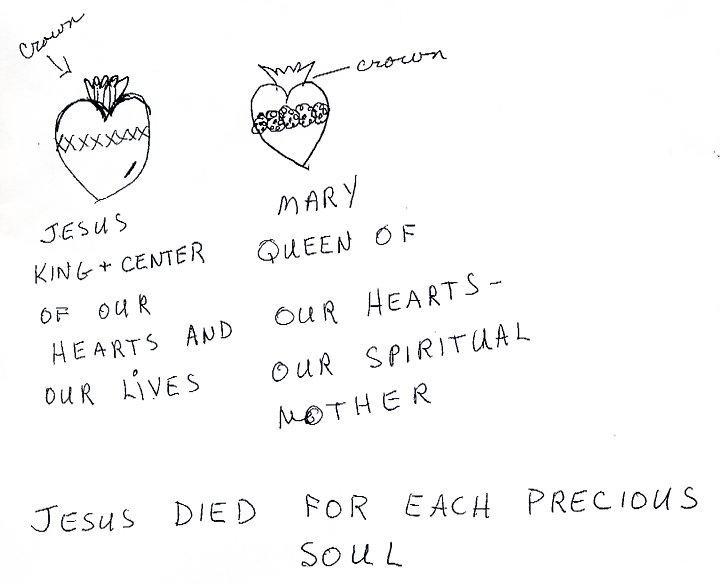 crown
crown
JESUS
KING + CENTER
OF OUR
HEARTS AND
OUR LIVES
MARY
QUEEN OF
OUR HEARTS -
OUR SPIRITUAL
MOTHER
JESUS DIED FOR EACH PRECIOUS
SOUL